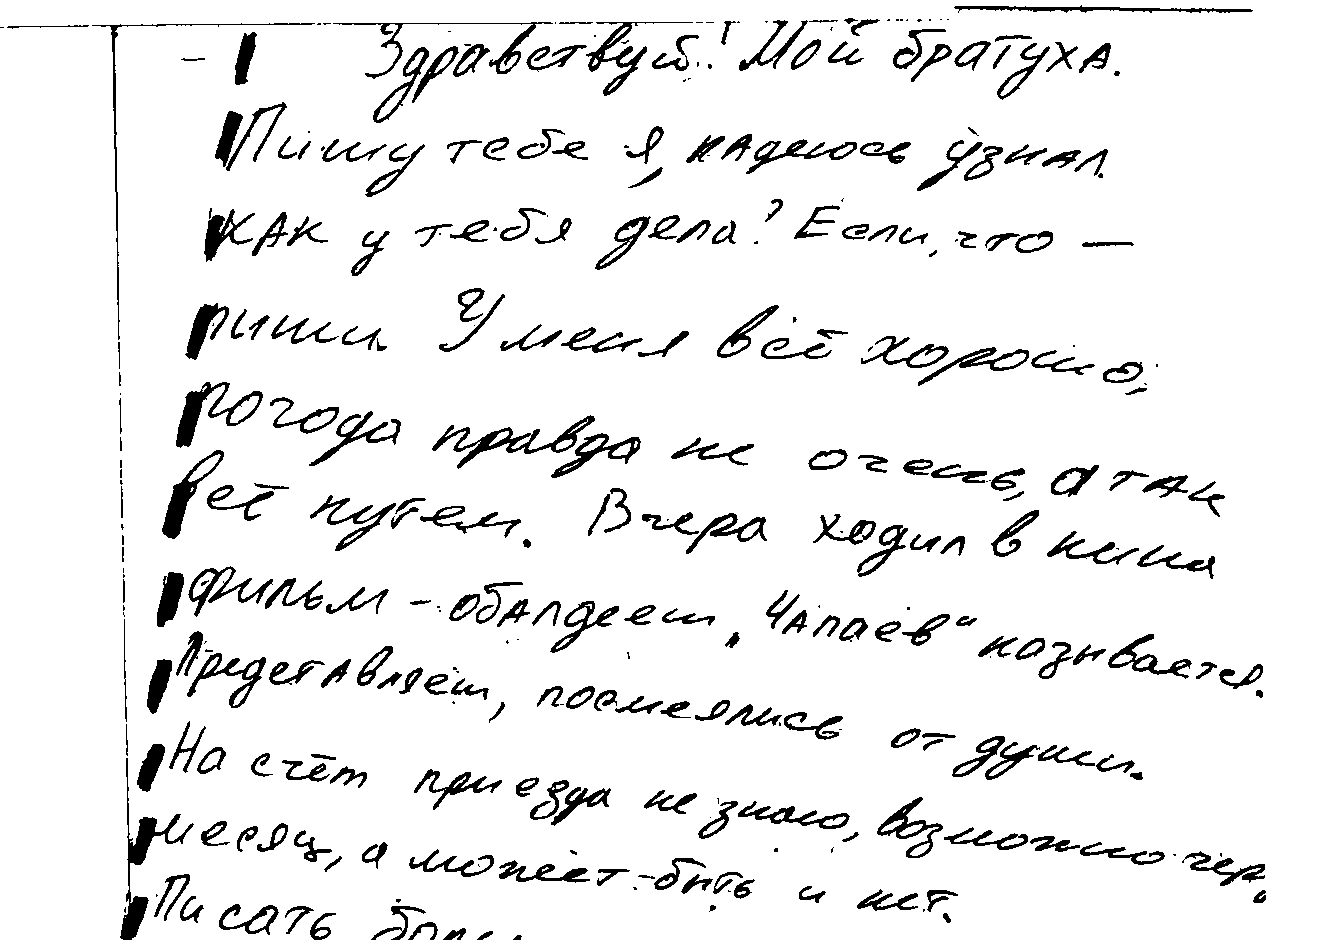 Здравствуй! Мой братуха.
Пишу тебе я, надеюсь узнал.
Как у тебя дела? Если, что —
пиши. У меня всё хорошо,
погода правда не очень, а так
всё путем. Вчера ходил в кина
фильм - обалдееш „Чапаев“ называется.
Представляеш, посмеялись от души.
На счёт приезда не знаю, возможно чер.
месяц, а может-быть и нет.
Писать